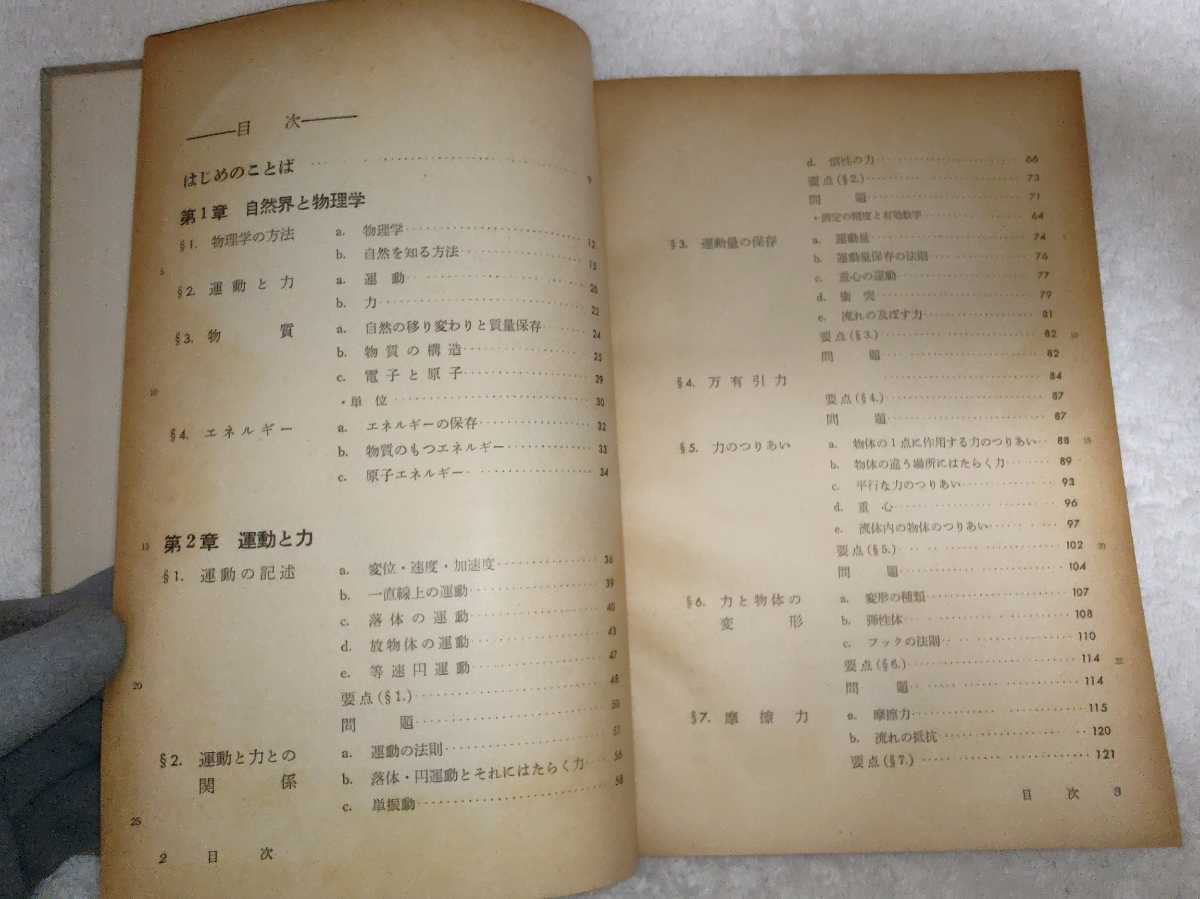 目 次
はじめのことば 9
第1章 自然界と物理学
§1. 物理学の方法 a. 物理学 12
b. 自然を知る方法 15
5
§2. 運動と力 a. 運動 20
b. 力 22
§3. 物質 a. 自然の移り変わりと質量保存 24
b. 物質の構造 25
c. 電子と原子 29
10
・単位 30
§4. エネルギー a. エネルギーの保存 32
b. 物質のもつエネルギー 33
c. 原子エネルギー 34
15
第2章 運動と力
§1. 運動の記述 a. 変位・速度・加速度 36
b. 一直線上の運動 39
c. 落体の運動 40
d. 放物体の運動 43
e. 等速円運動 47
20
要点(§1.) 48
問題 50
§2. 運動と力との関係 a. 運動の法則 51
b. 落体・円運動とそれにはたらく力 56
c. 単振動 58
25
2 目 次
d. 慣性の力 66
要点(§2.) 73
問題 71
・測定の精度と有効数字 64
§3. 運動量の保存 a. 運動量 74
b. 運動量保存の法則 76
c. 重心の運動 77
d. 衝突 79
e. 流れの及ぼす力 81
要点(§3.) 82
10
問題 82
§4. 万有引力 84
要点(§4.) 87
問題 87
§5. 力のつりあい a. 物体の1点に作用する力のつりあい 88
15
b. 物体の違う場所にはたらく力 89
c. 平行な力のつりあい 93
d. 重心 96
e. 流体内の物体のつりあい 97
要点(§5.) 102
20
問題 104
§6. 力と物体の変形 a. 変形の種類 107
b. 弾性体 108
c. フックの法則 110
要点(§6.) 114
問題 114
§7. 摩擦力 a. 摩擦力 115
b. 流れの抵抗 120
要点(§7.) 121
目 次 3